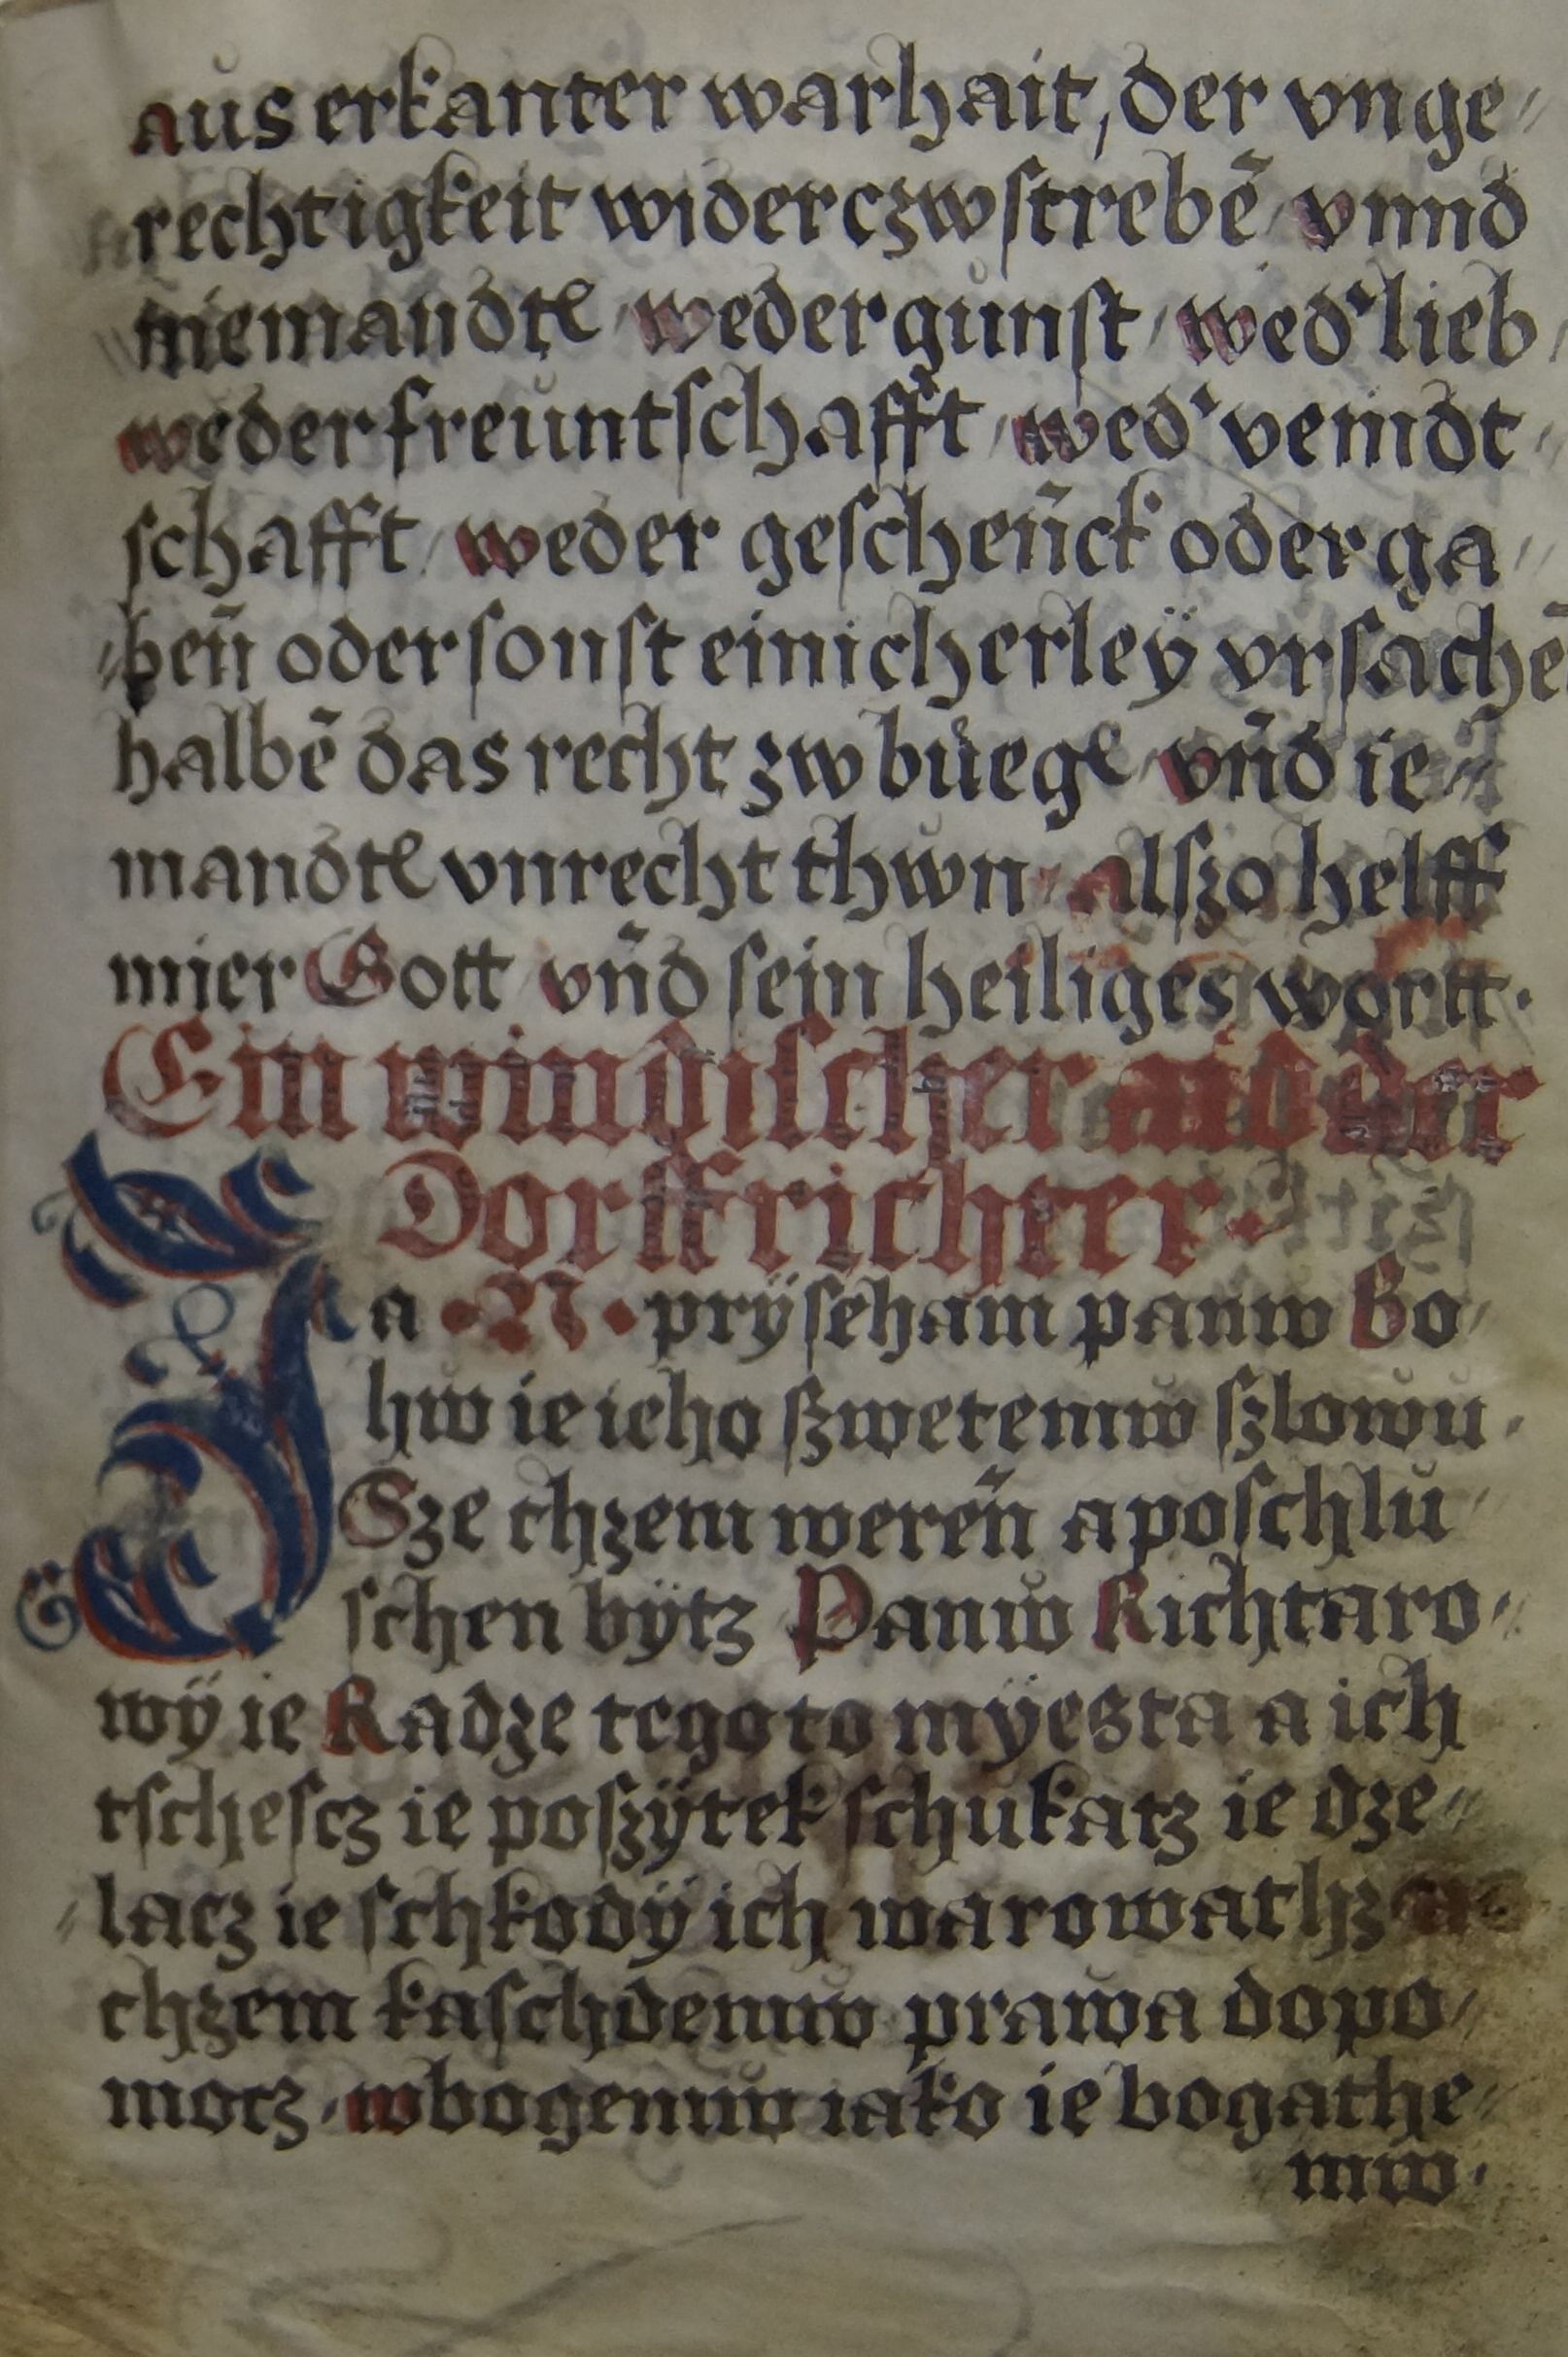 aus erkanter warhait, der vnge⸗
rechtigkeit widerczwstrebē vnnd
niemandtē wedergunst / wed' lieb /
weder freuntschafft / wed' veindt⸗
schafft / weder geschenck oder ga⸗
⸗ben oder sonst einicherleÿ vrsachē
halbē das recht zw buege vnd ie⸗
mandtē vnrecht thwn alszo helff
mier Gott vnd sein heiliges wortt.
Ein windischer aid der
Dorffrichter.
Ja .N. prÿseham panw Bo
hw ie ieho szwetemw szlowu.
Sze chzem weren a poschlu⸗
schen bÿtz Panw Richtaro⸗
wÿ ie Radze tego to mÿesta a ich
tschescz ie poszÿtek schukatz ie dze⸗
⸗lacz ie schkodÿ ich warowathz a
chzem kaschdemw prawa dopo
mocz. wbogemw iako ie bogathe⸗
mw.